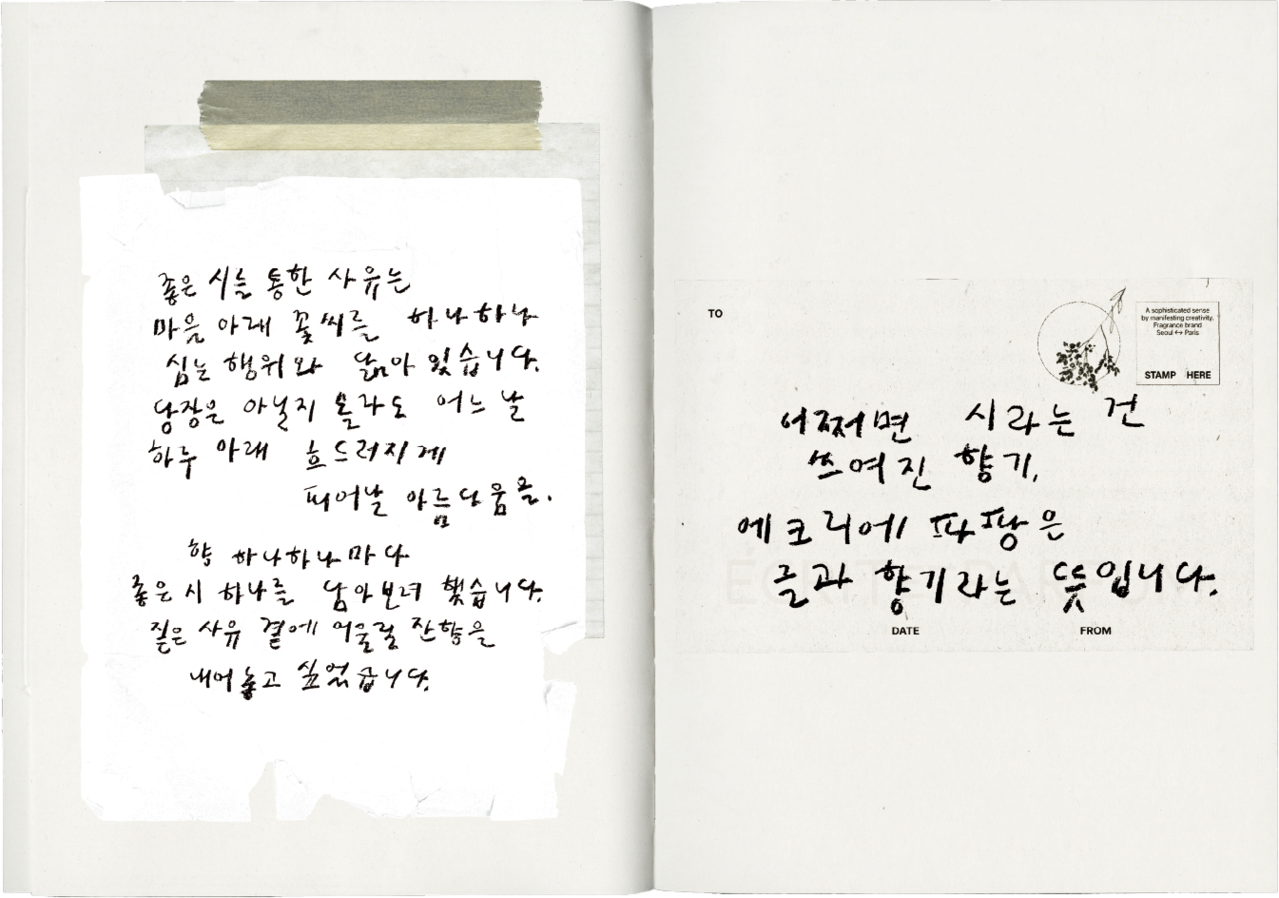 좋은 시를 통한 사유는
마음 아래 꽃씨를 하나하나
심는 행위와 닮아 있습니다.
당장은 아닐지 몰라도 어느 날
하루 아래 흐드러지게
피어날 아름다움을.
향 하나하나마다
좋은 시 하나를 담아보려 했습니다.
짙은 사유 곁에 어울릴 잔향을
내어놓고 싶었습니다.
TO
A sophisticated sense
by manifesting creativity.
Fragrance brand
Seoul ↔ Paris
STAMP HERE
어쩌면 시라는 건
쓰여진 향기,
에크리에 파팡은
글과 향기라는 뜻입니다.
DATE FROM